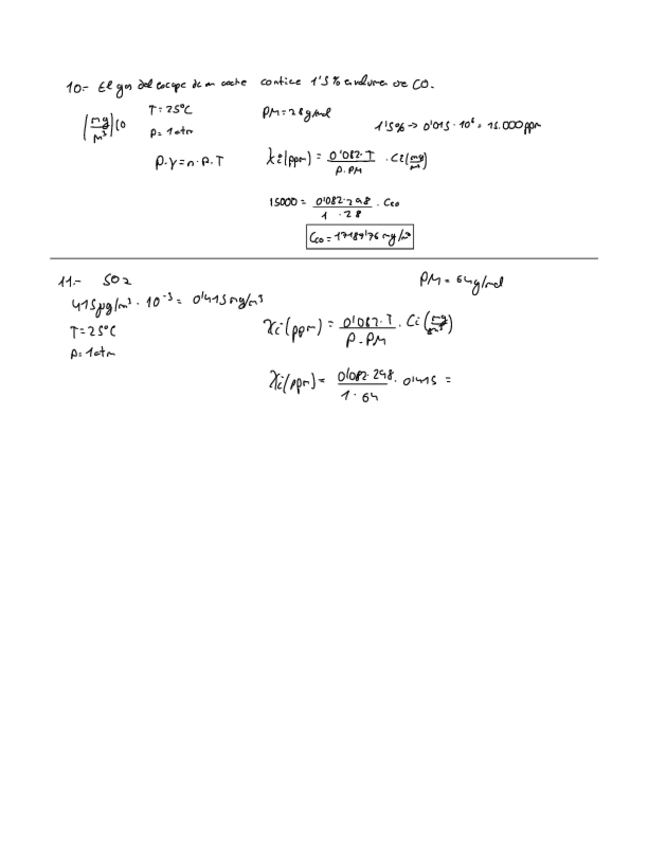 10.- El gas del escape de un coche contiene 1'5% en volumen de CO.
(mg/m³) CO T = 25°C PM = 28 g/mol
P = 1 atm 1'5% → 0'015 · 10⁶ = 15.000 ppm
P·V = n·R·T Xi(ppm) = 0'082·T / P·PM · Ci(mg/m³)
15000 = 0'082·298 / 1·28 · Cco
Cco = 17189'76 mg/m³
11.- SO2 PM = 64 g/mol
415 µg/m³ · 10⁻³ = 0'415 mg/m³
T = 25°C Xi(ppm) = 0'082·T / P·PM · Ci(mg/m³)
P = 1 atm
Xi(ppm) = 0'082·298 / 1·64 · 0'415 =